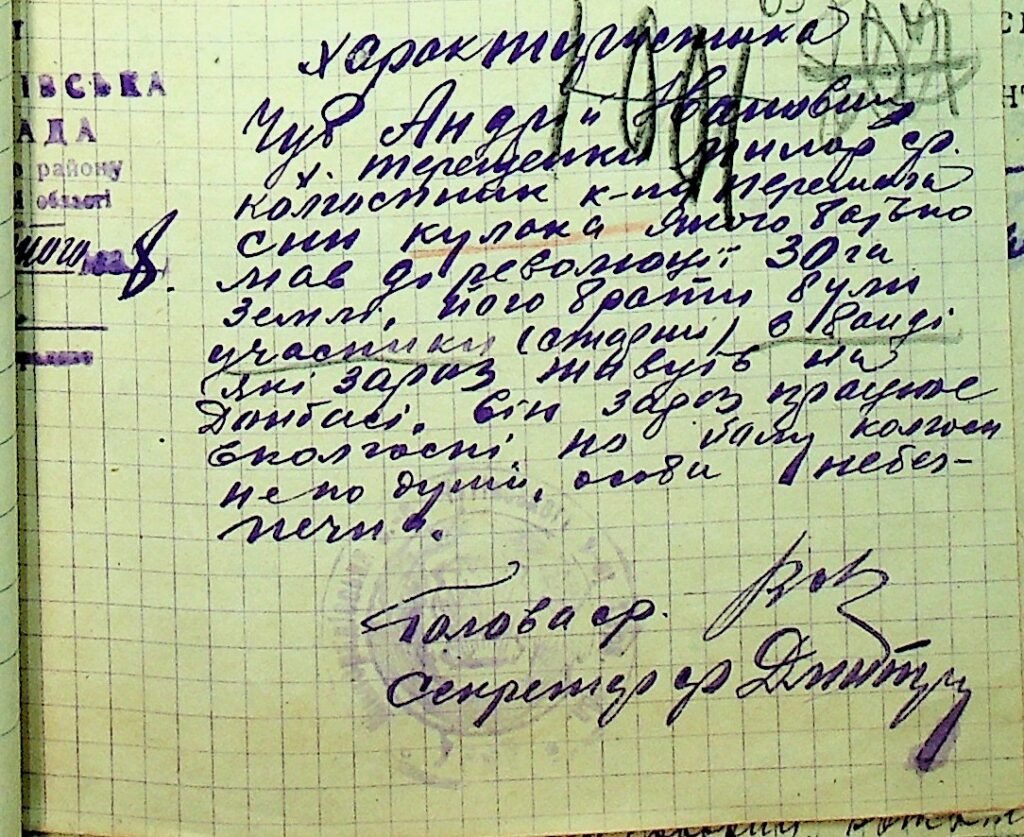 Характиристика
ІВСЬКА
АДА
району
області
8
Чуб Андрій Іванович
х. Терещенки ср.
колгостник к-пу перемога
син кулака якого батько
мав до революції 30 га
землі, його брати були
участники (старший) в банді
які зараз живуть на
Донбасі. Він зараз працює
вколгоспі но йому колгосп
не по думі, особи небез-
печна.
Голова ср.
Секретар ср